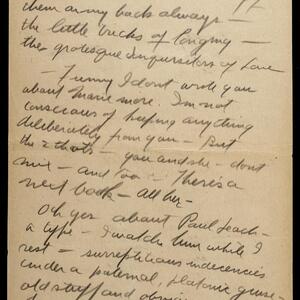 them army backs always —
the little tricks of longing —
the grotesque inquisitors of love
— Funny I don't wrote you
about Marie more. I'm not
conscious of keeping anything
deliberately from you — But
the 2 thats — you and she — dont
mix — and so — There's a
next book — all her —
Oh yes about Paul Leach —
a type — I watch him while I
rest — surreptitious indecencies
under a paternal, platonic guise —
old stuff and